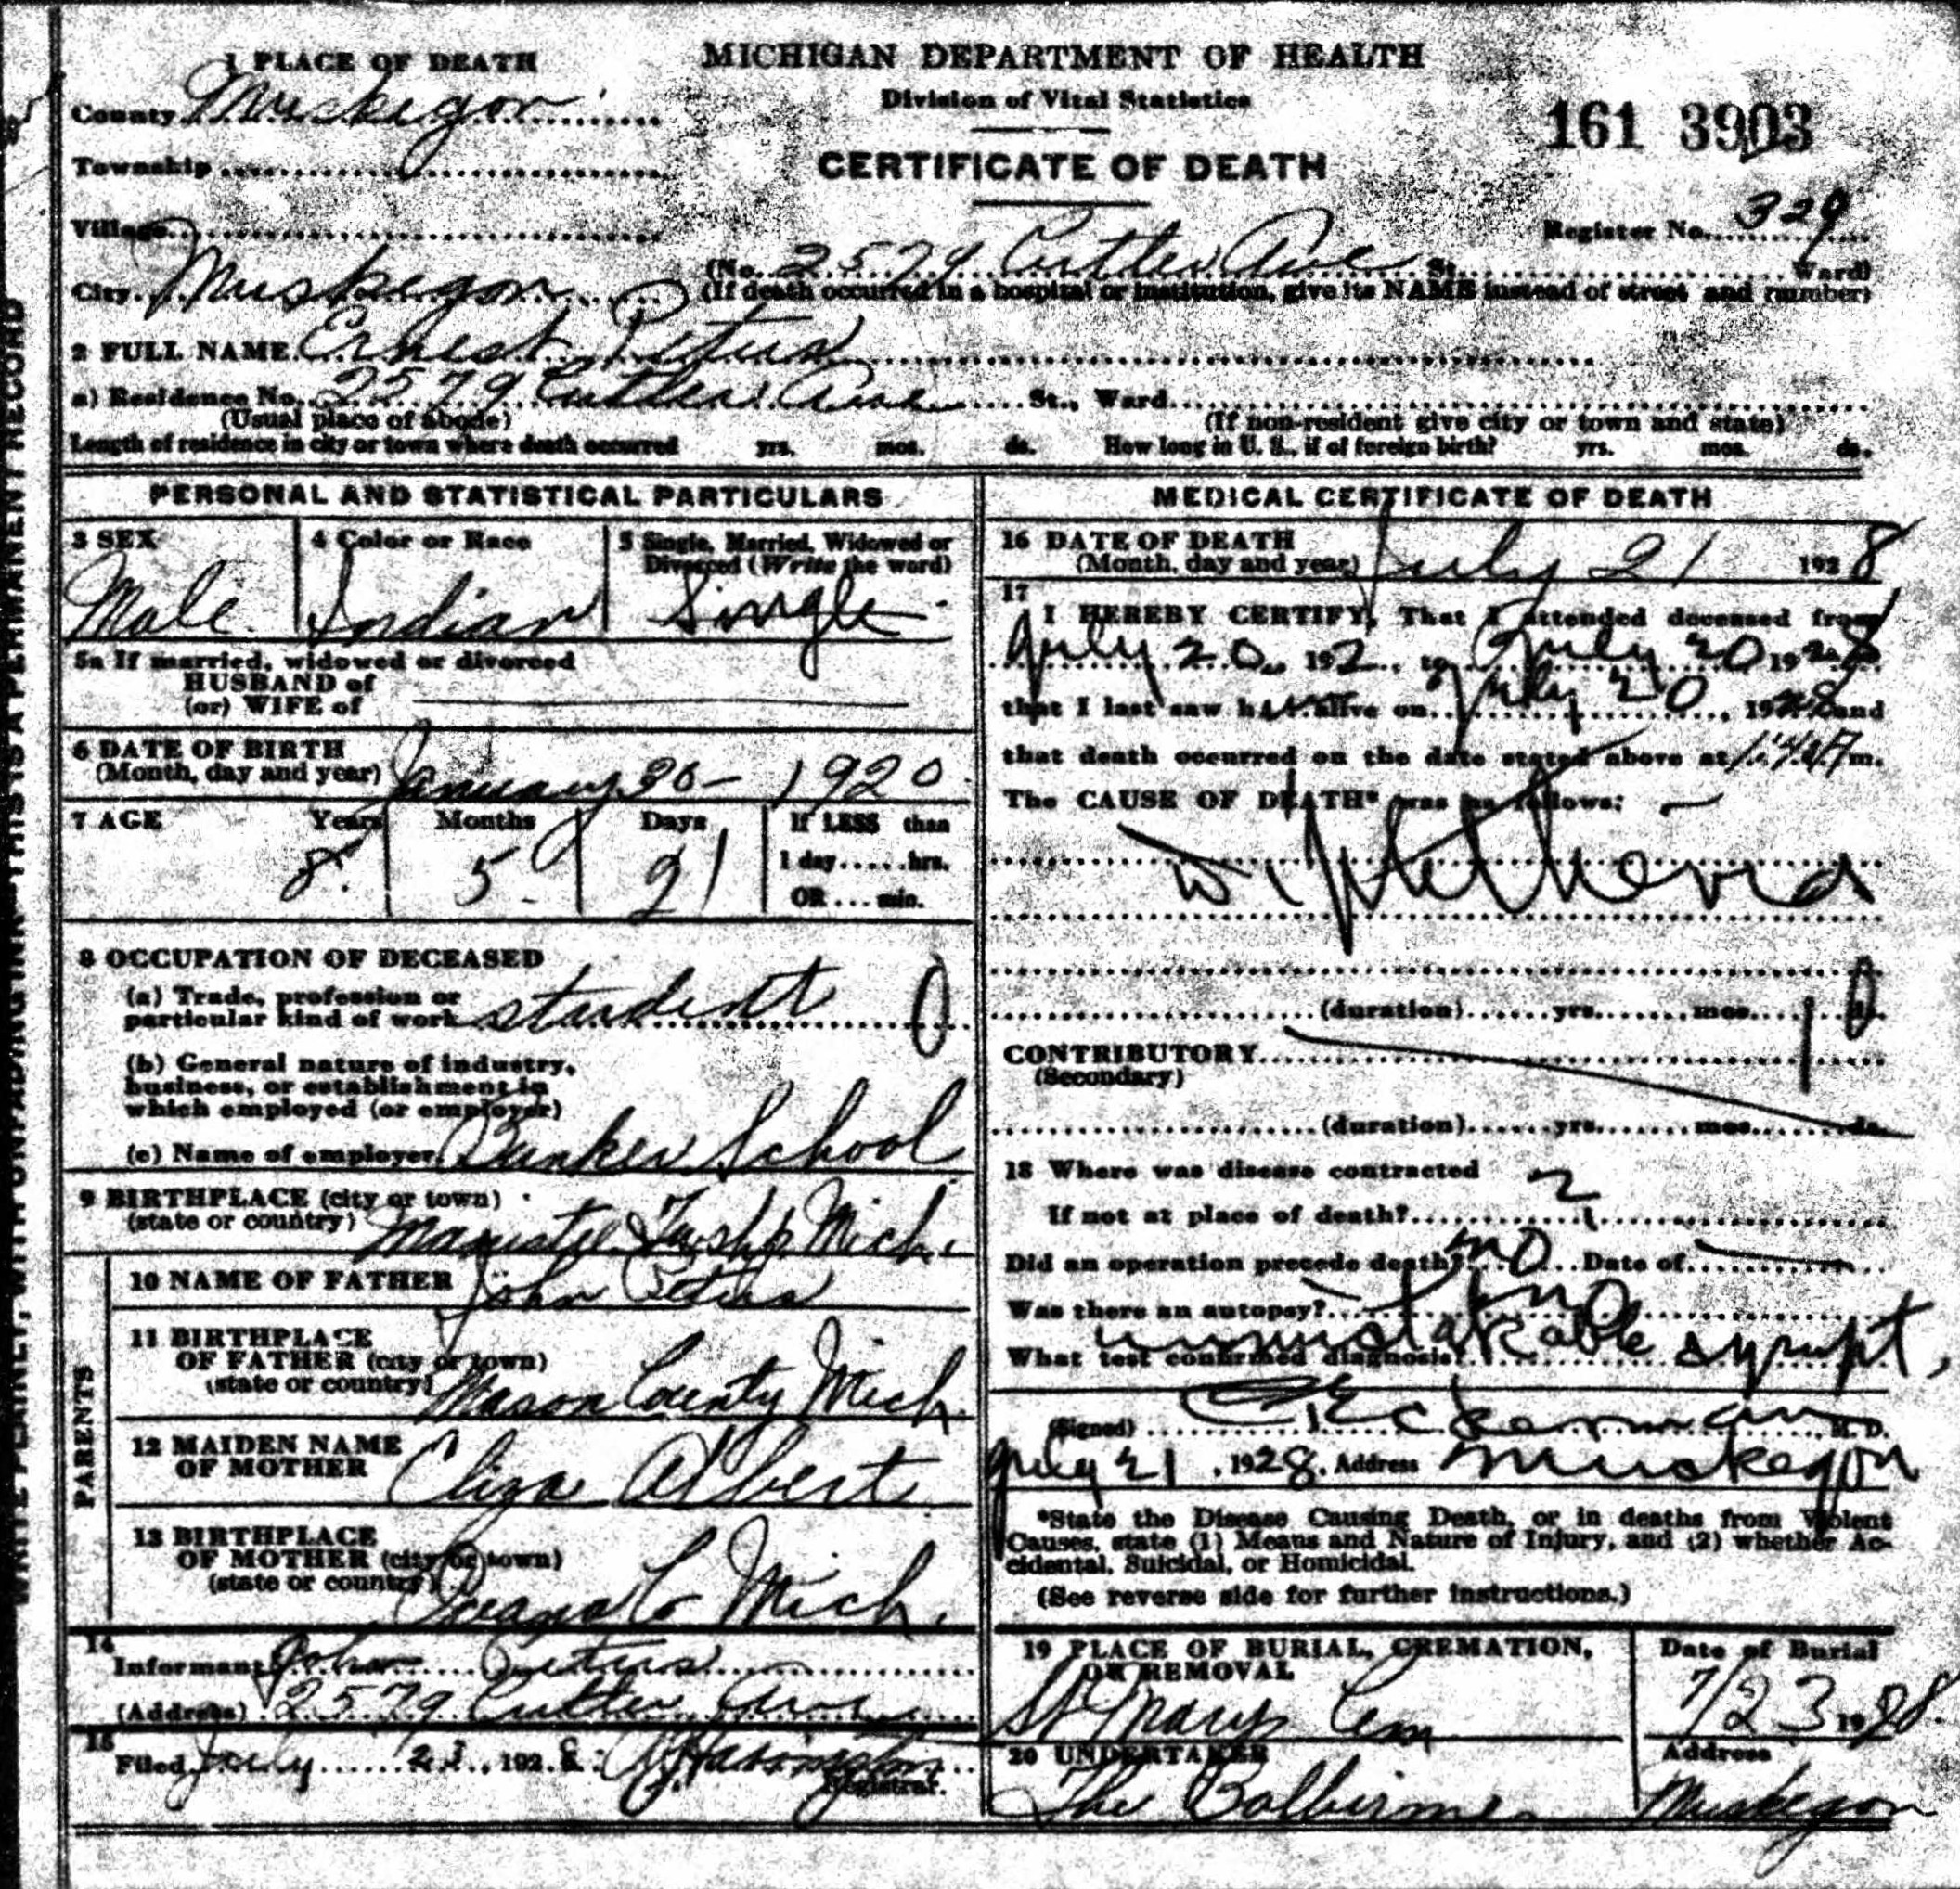 MICHIGAN DEPARTMENT OF HEALTH
Division of Vital Statistics
CERTIFICATE OF DEATH
161 3903
Register No. 329
1 PLACE OF DEATH
County Muskegon
Township
Village
City Muskegon (No. 2579 Cutler Ave St. Ward)
(If death occurred in a hospital or institution, give its NAME instead of street and number)
2 FULL NAME Ernest Petus
a) Residence No. 2579 Cutler Ave St., Ward
(Usual place of abode) (If non-resident give city or town and state)
Length of residence in city or town where death occurred yrs. mos. ds. How long in U. S., if of foreign birth? yrs. mos. ds.
WRITE PLAINLY, WITH UNFADING INK—THIS IS A PERMANENT RECORD
PERSONAL AND STATISTICAL PARTICULARS
3 SEX
Male
4 Color or Race
Indian
5 Single, Married, Widowed or
Divorced (Write the word)
Single
5a If married, widowed or divorced
HUSBAND of
(or) WIFE of
6 DATE OF BIRTH
(Month, day and year) January 30 - 1920
7 AGE Years Months Days If LESS than
1 day.....hrs.
OR...min.
8 5 21
8 OCCUPATION OF DECEASED
(a) Trade, profession or
particular kind of work student 0
(b) General nature of industry,
business, or establishment in
which employed (or employer)
(c) Name of employer Bunker School
9 BIRTHPLACE (city or town)
(state or country) Twshp Mich.
PARENTS
10 NAME OF FATHER John Petus
11 BIRTHPLACE
OF FATHER (city or town)
(state or country) Mason County Mich
12 MAIDEN NAME
OF MOTHER Eliza Albert
13 BIRTHPLACE
OF MOTHER (city or town)
(state or country) Oceana Co Mich.
14
Informant John Petus
(Address) 2579 Cutler Ave
15
Filed July 23, 1928
Registrar.
MEDICAL CERTIFICATE OF DEATH
16 DATE OF DEATH
(Month, day and year) July 21 1928
17
I HEREBY CERTIFY, That I attended deceased from
July 20, 192 , to July 20 1928
that I last saw him alive on July 20, 1928 and
that death occurred on the date stated above at m.
The CAUSE OF DEATH* was as follows:
Diphtheria
(duration) yrs. mos. 1 ds.
CONTRIBUTORY
(Secondary)
(duration) yrs. mos. ds.
18 Where was disease contracted
If not at place of death? ?
Did an operation precede death? no Date of
Was there an autopsy? no
What test confirmed diagnosis? unmistakable sympt,
(Signed) Eckerman, M. D.
July 21, 1928. Address Muskegon
*State the Disease Causing Death, or in deaths from Violent
Causes, state (1) Means and Nature of Injury, and (2) whether Ac-
cidental, Suicidal, or Homicidal.
(See reverse side for further instructions.)
19 PLACE OF BURIAL, CREMATION,
OR REMOVAL
St Marys Cem
Date of Burial
7/23 1928.
20 UNDERTAKER
The
Address
Muskegon